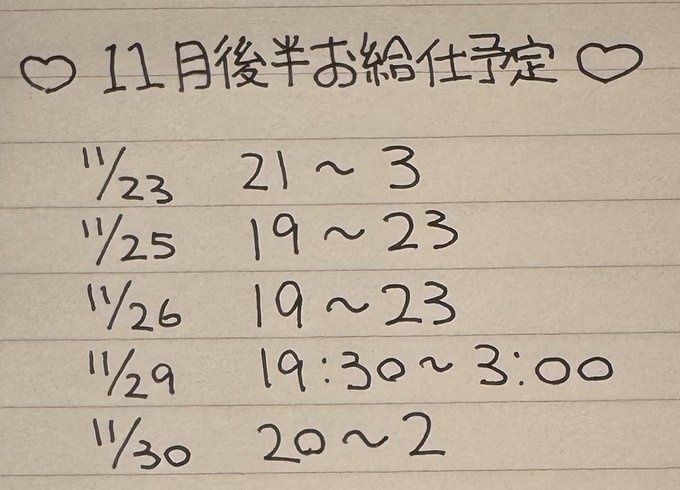 ♡ 11月後半お給仕予定 ♡
11/23 21～3
11/25 19～23
11/26 19～23
11/29 19:30～3:00
11/30 20～2